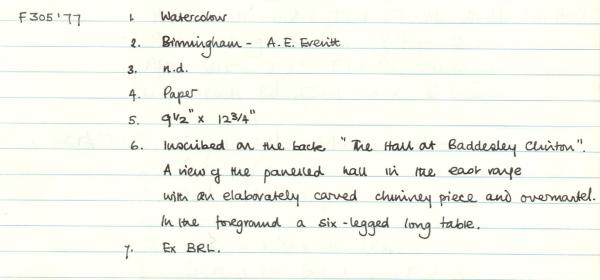 F305'77 1. Watercolour
2. Birmingham - A.E. Everitt
3. n.d.
4. Paper
5. 9 1/2" x 12 3/4"
6. Inscribed on the back "The Hall at Baddesley Clinton".
A view of the panelled hall in the east range
with an elaborately carved chimney piece and overmantel.
In the foreground a six-legged long table.
7. Ex BRL.